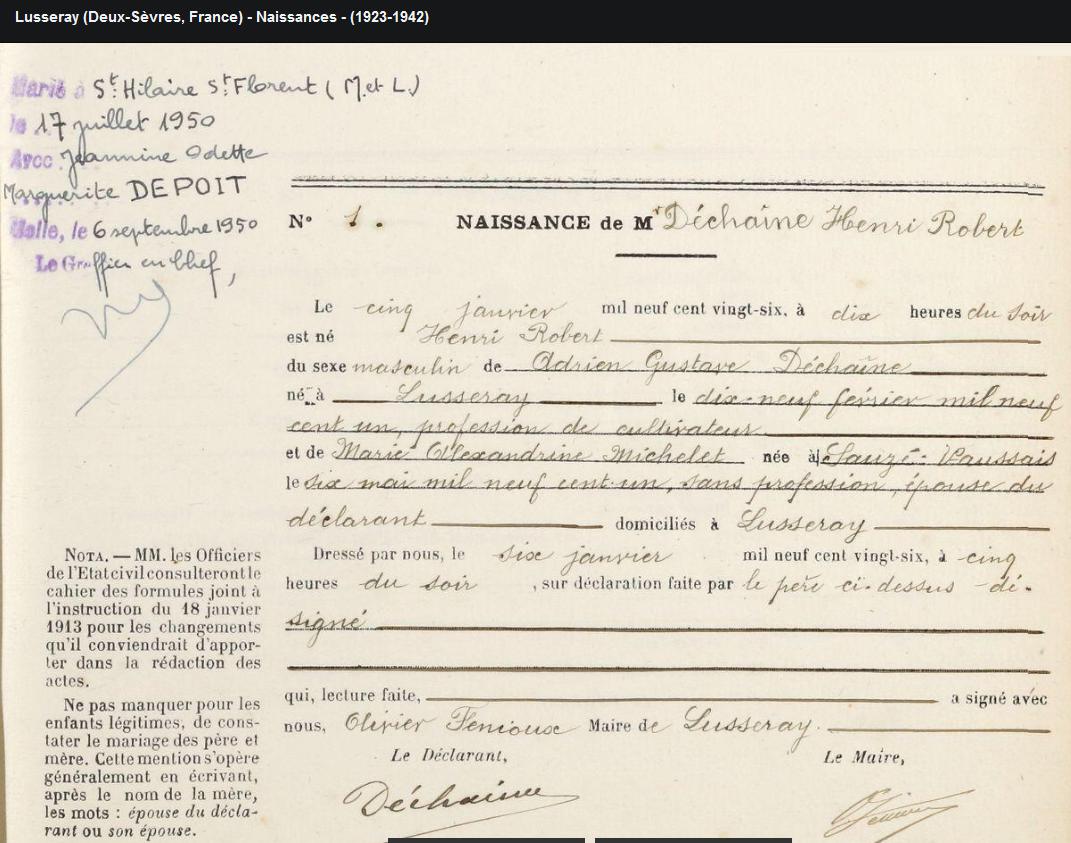 Lusseray (Deux-Sèvres, France) - Naissances - (1923-1942)
Marié à St Hilaire St Florent (M. et L.)
le 17 juillet 1950
Avec Jeannine Odette
Marguerite DEPOIT
Melle, le 6 septembre 1950
Le Greffier en Chef,
N° 1. NAISSANCE de Mr Déchaîne Henri Robert
Le cinq janvier mil neuf cent vingt-six, à dix heures du soir
est né Henri Robert
du sexe masculin de Adrien Gustave Déchaîne
né à Lusseray le dix-neuf février mil neuf
cent un, profession de cultivateur
et de Marie Alexandrine Michelet née à Sauzé-Vaussais
le six mai mil neuf cent un, sans profession, épouse du
déclarant domiciliés à Lusseray
Dressé par nous, le six janvier mil neuf cent vingt-six, à cinq
heures du soir, sur déclaration faite par le père ci-dessus dé-
signé
qui, lecture faite, a signé avec
nous, Olivier Fenioux Maire de Lusseray.
Le Déclarant, Le Maire,
Déchaîne
NOTA. — MM. les Officiers
de l'Etat civil consulteront le
cahier des formules joint à
l'instruction du 18 janvier
1913 pour les changements
qu'il conviendrait d'appor-
ter dans la rédaction des
actes.
Ne pas manquer pour les
enfants légitimes, de cons-
tater le mariage des père et
mère. Cette mention s'opère
généralement en écrivant,
après le nom de la mère,
les mots : épouse du décla-
rant ou son épouse.